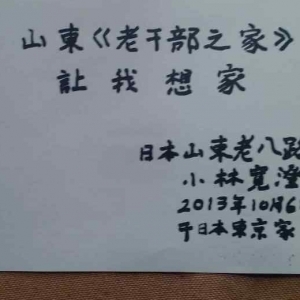 山東《老干部之家》
讓我想家
日本山東老八路
小林寬澄
2013年10月6
于日本東京家